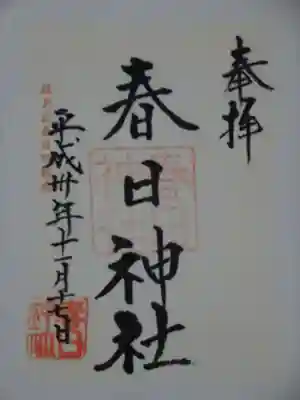 奉拝
春日神社
平成卅年十一月十七日